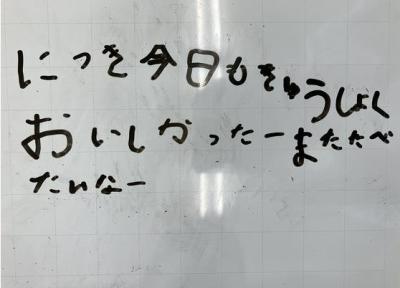 にっき今日もきゅうしょく
おいしかったーまたたべ
たいなー